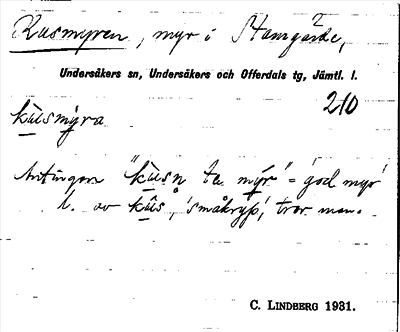 Kusmyren, myr i Hamgärde,
Undersåkers sn, Undersåkers och Offerdals tg, Jämtl. l.
210
kùsmy̆ra
Antingen "kùsn̥ ta my̆r" = 'god myr'
l. av kûs, 'småkryp', tror man.
C. LINDBERG 1931.